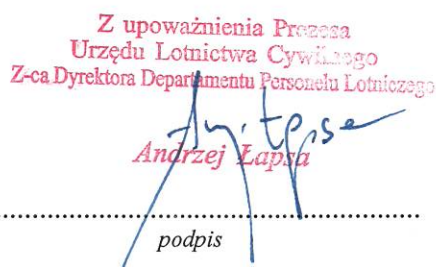 Z upoważnienia Prezesa
Urzędu Lotnictwa Cywilnego
Z-ca Dyrektora Departamentu Personelu Lotniczego
Andrzej Łapsa
podpis